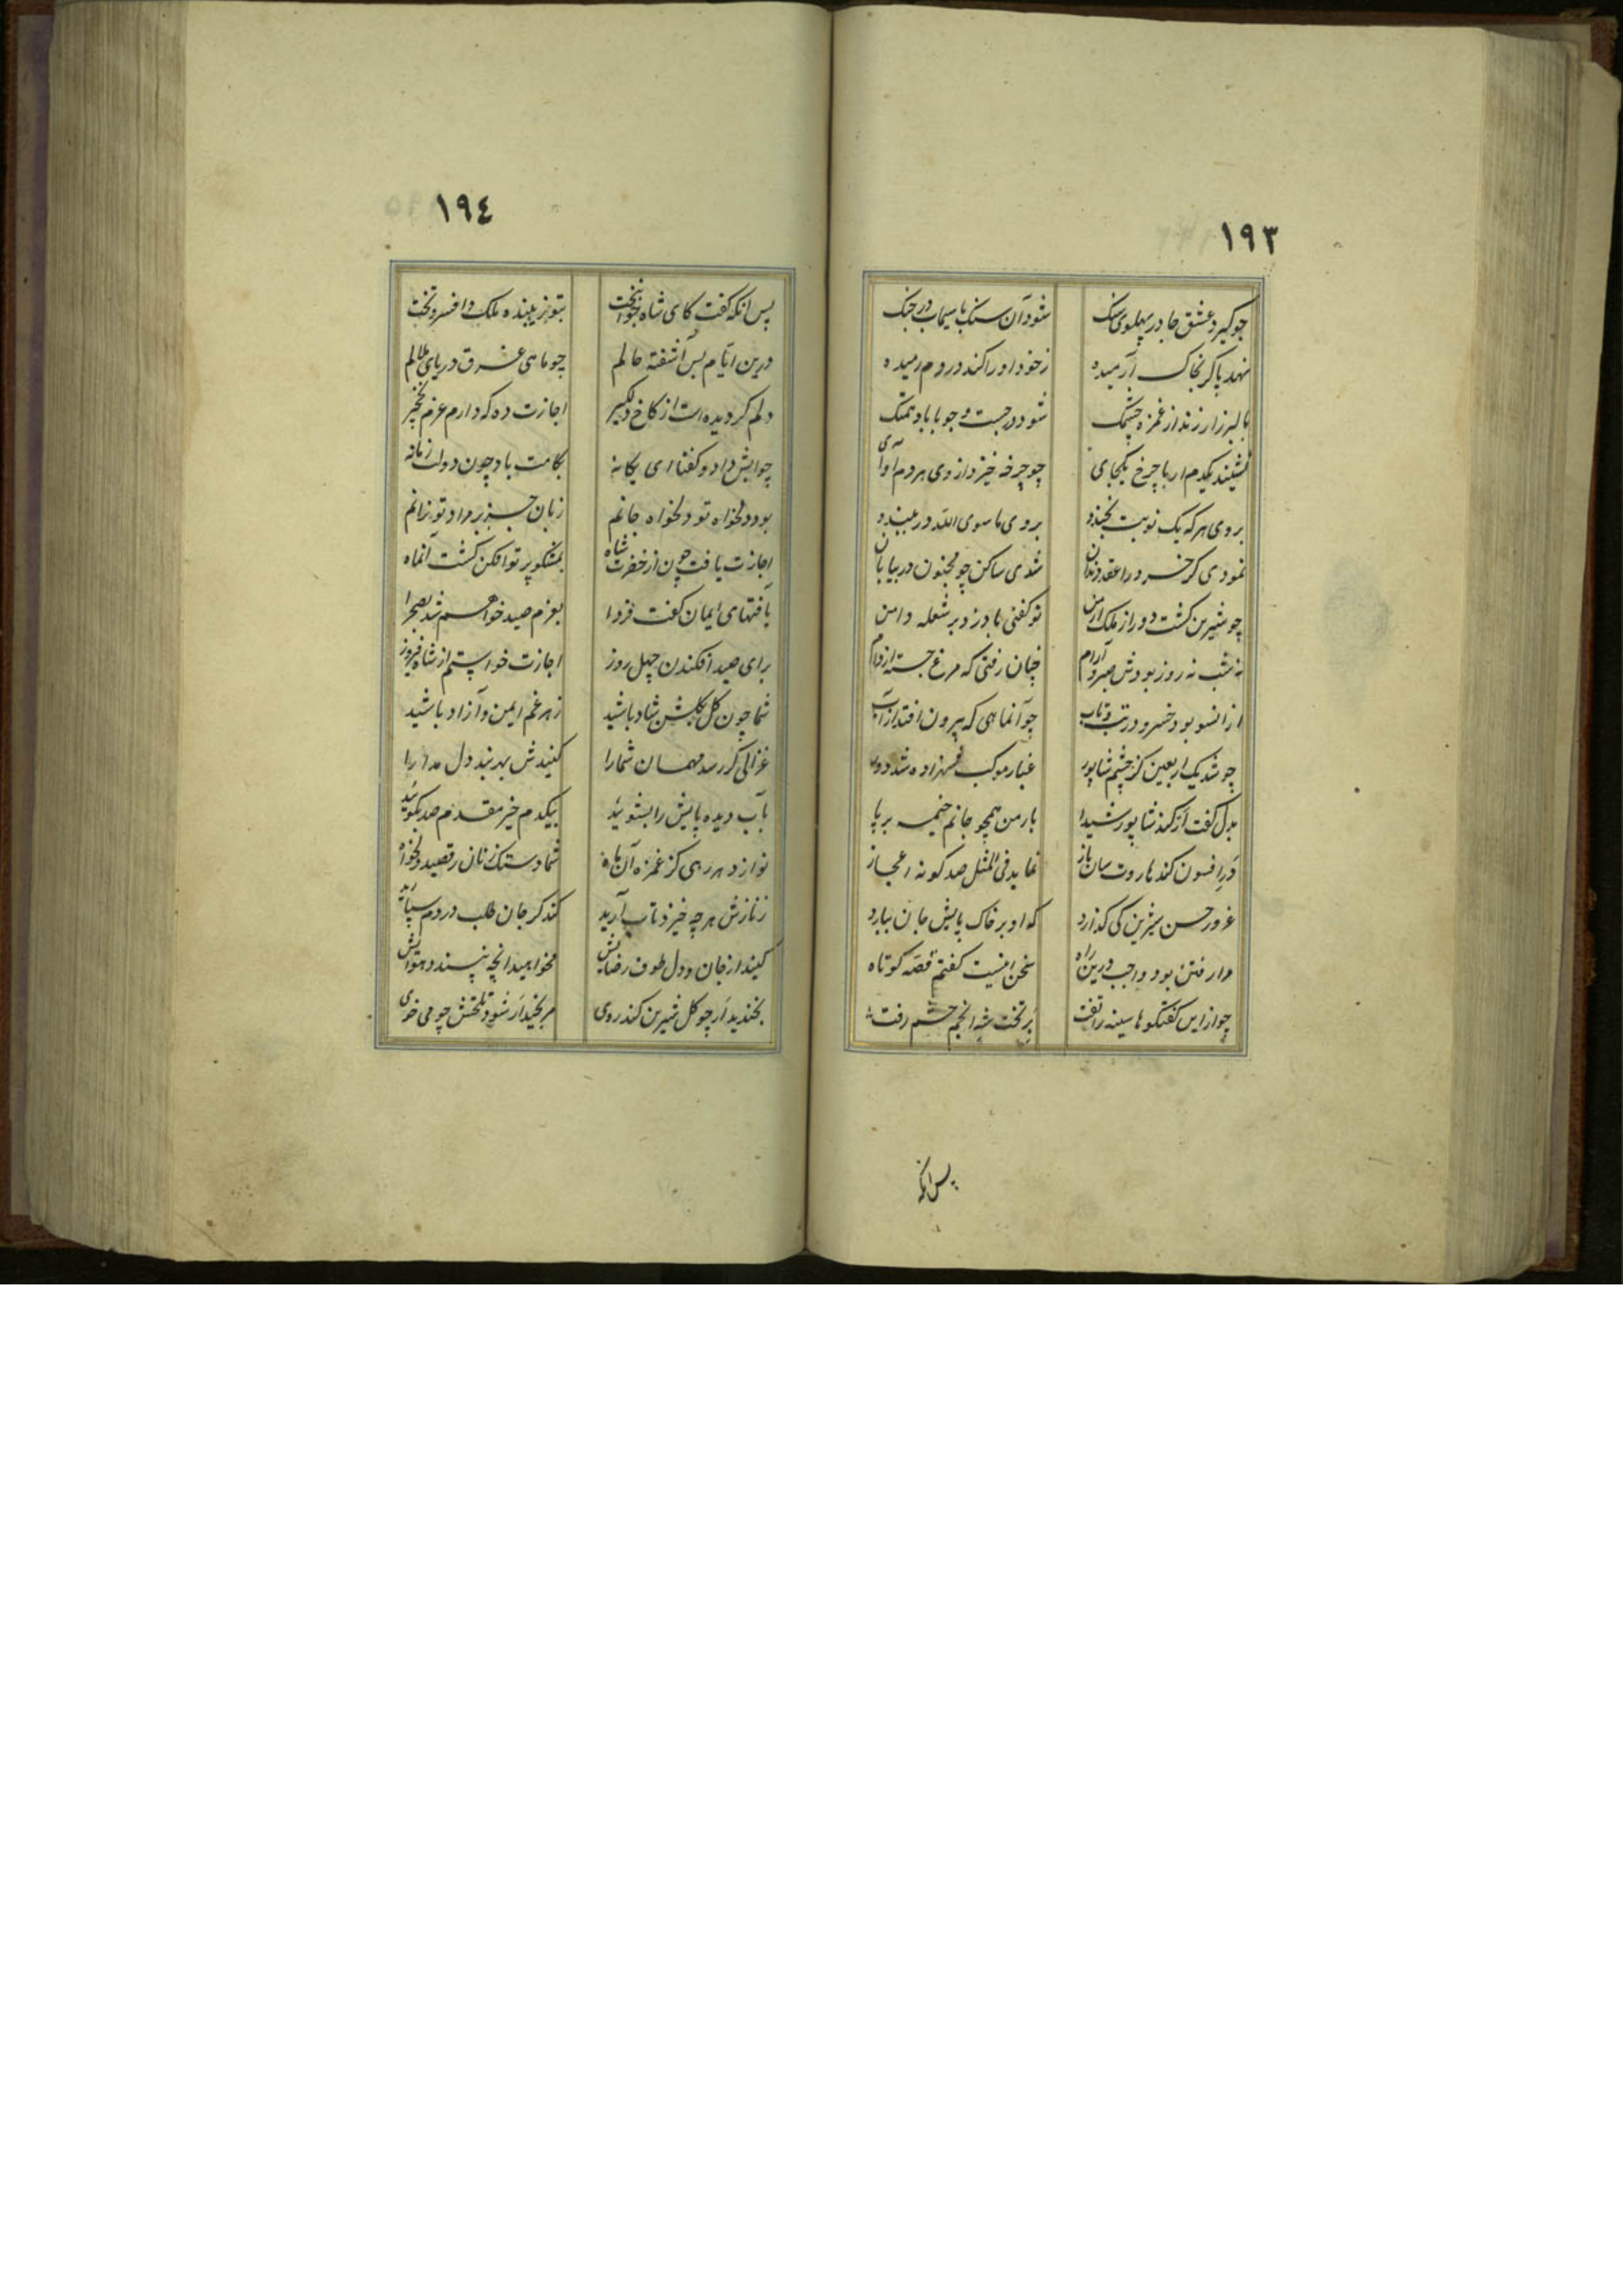 ١٩٣
چو گیرد عشق جا در پهلوی سنک شود آن سنک با سیماب در جنک
نهد پا کر بخاک آرمیده زخود او را کند در دم رمیده
بالبرز ار زند از غمزه چشمک شود در جست و جو با باد همتک
نشیند یکدم ار با چرخ یکجای چو چرخه خیزد از وی هر دم آوای
بروی هر که یک نوبت بخندد بروی ما سوی الله در ببندد
نمودی کر خسرو را عقد دندان شدی ساکن چو مجنون در بیابان
چو شیرین کشت دور از ملک ارمن تو کفتی باد زد بر شعله دامن
نه شب نه روز بودش صبر و آرام چنان رفتی که مرغ جسته از دام
از انسو بود خسرو در تب و تاب چو آنماهی که بیرون افتد از آب
چو شد یک اربعین کز چشم شاپور غبار موکب شهزاده شد دور
بدل گفت ار کند شاپور شیدا بار من همچو جانم خیمه برپا
ور افسون کند هاروت سان باز نماید فی المثل صد کونه اعجاز
غرور حسن شیرین کی کذارد که او بر خاک پایش جان سپارد
مرا رفتن بود واجب درین راه سخن اینست کفتم قصه کوتاه
چو از این کفتکوها سینه را تفت بر تخت شه انجم حشم رفت
پس انکه
١٩٤
پس انکه کفت کای شاه جوانبخت بتو زیبنده ملک و افسر و تخت
درین ایام بس آشفته حالم چو ماهی غرق دریای ملالم
دلم کردیده است از کاخ دلکیر اجازت ده که دارم عزم نخجیر
جوابش داد و کفتا ای یکانه بکامت باد چون دولت زمانه
بود دلخواه تو دلخواه جانم زبان جز بر مراد تو نرانم
اجازت یافت چون از حضرت شاه بمشکو پرتو افکن کشت آنماه
بآفتهای ایمان کفت فردا بعزم صید خواهم شد بصحرا
برای صید افکندن چهل روز اجازت خواستم از شاه فیروز
شما چون کل بکلشن شاد باشید زهر غم ایمن و آزاد باشید
غزالی کر رسد مهمان شما را کنیدش بهر بند دل مدارا
بآب دیده پایش را بشوئید بیکدم خیر مقدم صد بکوئید
نوازد هر رهی کز غمزه آن ماه شما دستک زنان رقصید دلخواه
زنازش هر چه خیزد تاب آرید کند کر جان طلب در دم سپارید
کنید از جان و دل طوف رضایش مخواهید انچه نپسندد هوایش
بخندید ار چو کل شیرین کند روی مرنجید ار شود تلخش چو می خوی